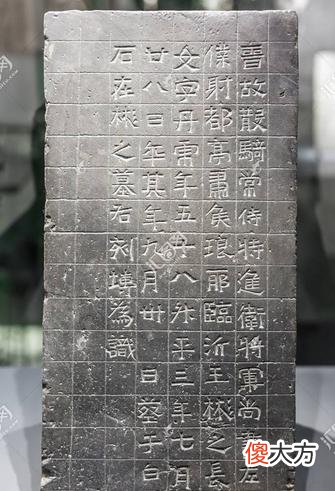 晉故散騎常侍特進衛將軍尚書左
僕射都亭肅侯琅耶臨沂王彬之長
女字丹虎年五十八升平三年七月
廿八日卒其年九月卅日葬于白
石在彬之墓右刻塼為識
傻大方